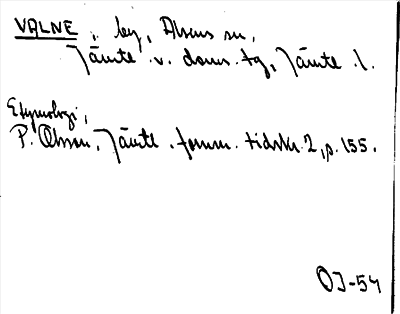 VALNE, by, Alsens sn,
Jämte. v. doms. tg, Jämte. l.
Etymologi,
P. Olsson, Jämtl. fornm. tidskr. 2, p. 155.
OJ-54